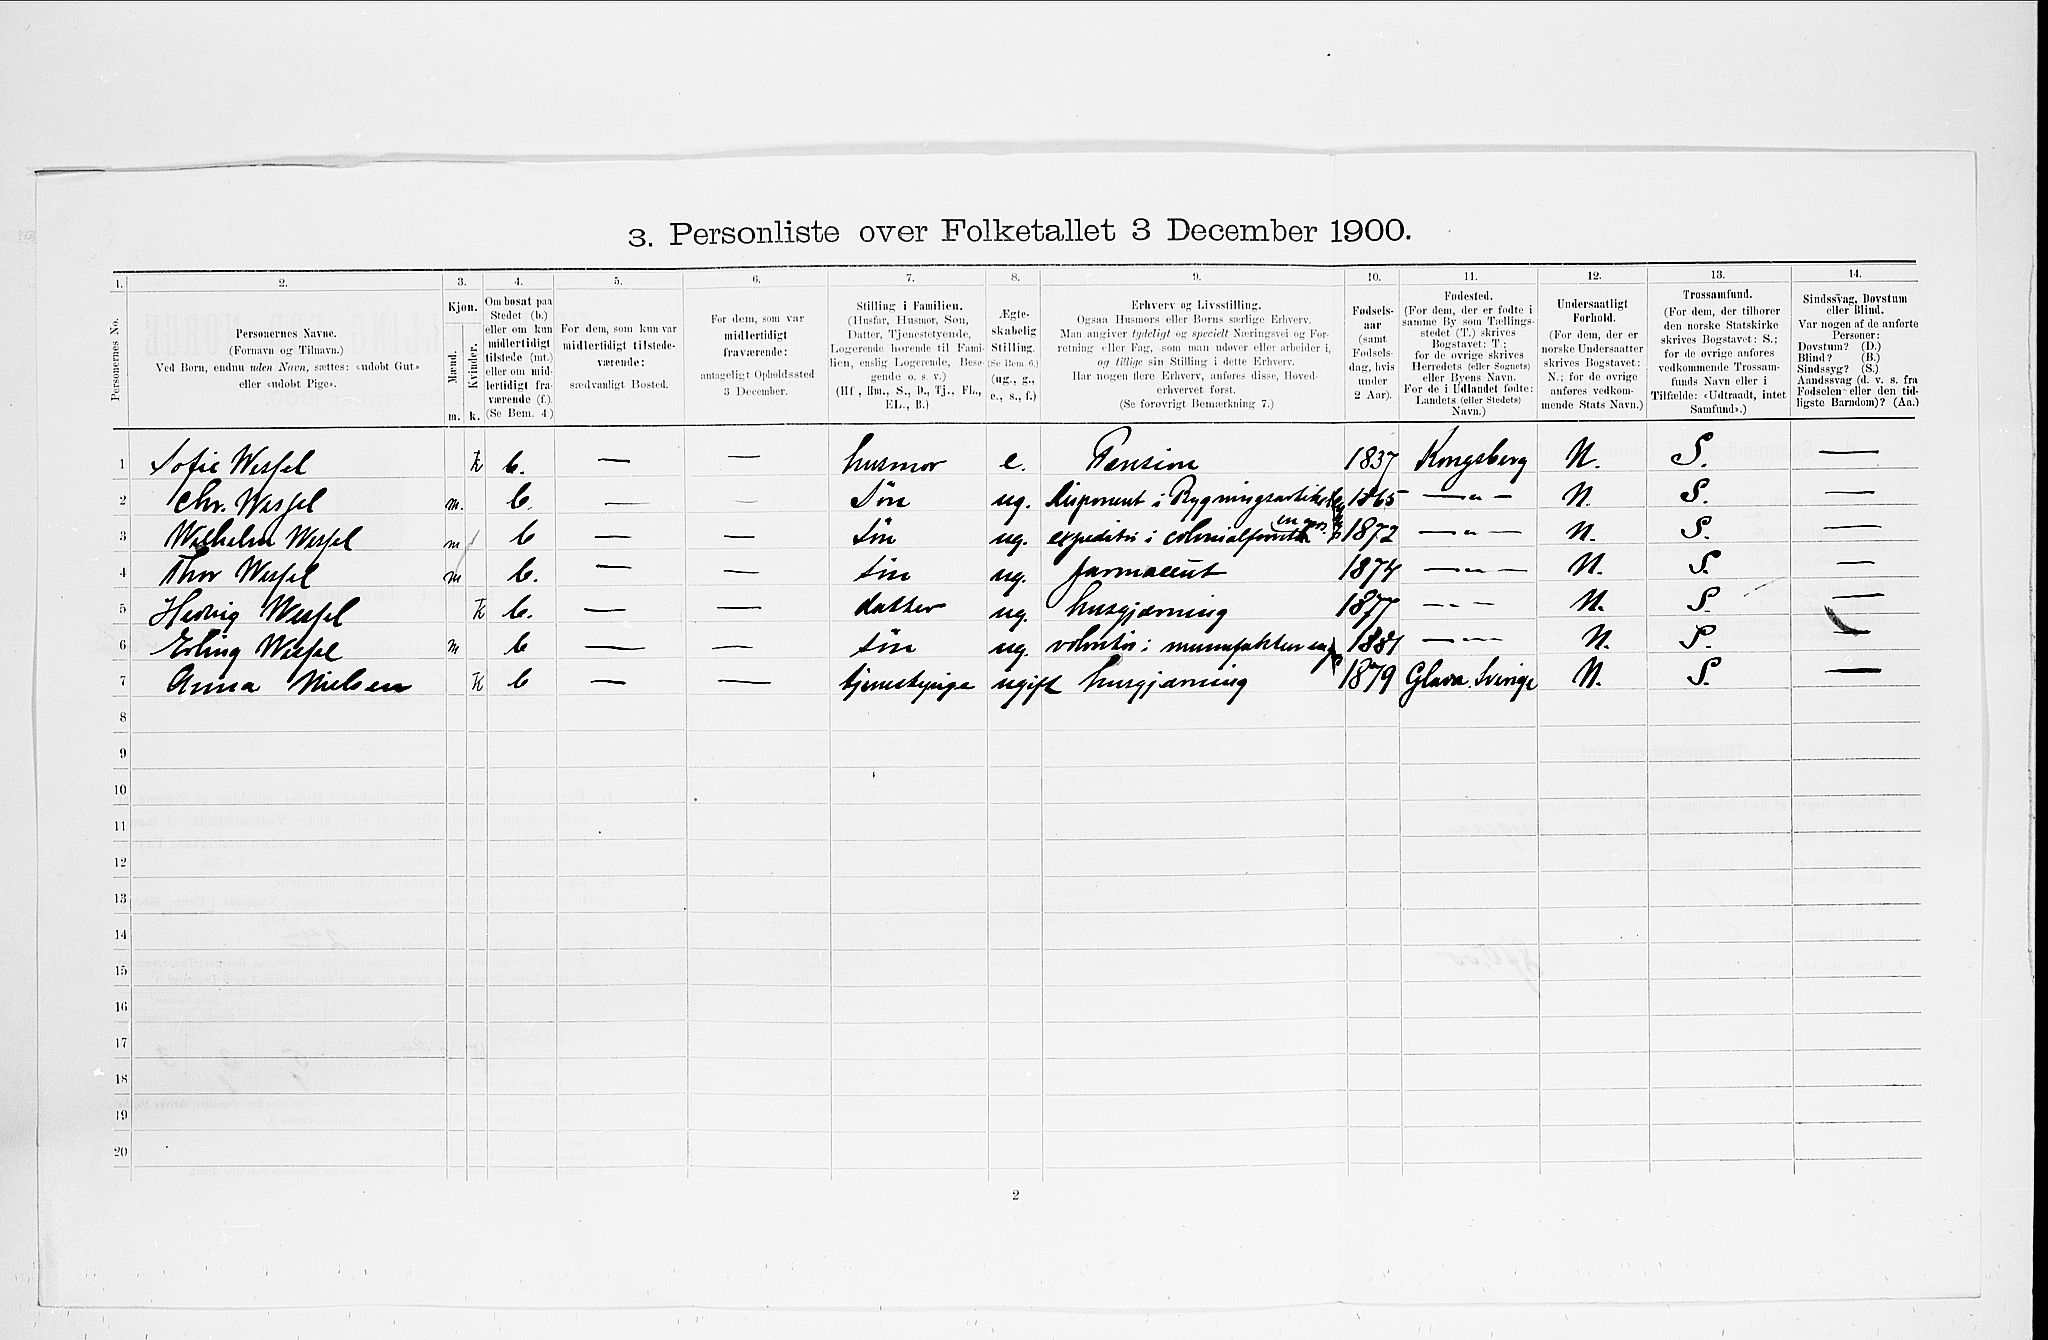 3. Personliste over Folketallet 3 December 1900.
1. 2. 3. 4. 5. 6. 7. 8. 9. 10. 11. 12. 13. 14.
Personernes No.
Personernes Navne.
(Fornavn og Tilnavn.)
Ved Børn, endnu uden Navn, sættes: «udøbt Gut»
eller «udøbt Pige».
Kjøn.
Mænd.
Kvinder.
m. k.
Om bosat paa
Stedet (b.)
eller om kun
midlertidigt
tilstede (mt.)
eller om mid-
lertidigt fra-
værende (f.).
(Se Bem. 4.)
For dem, som kun var
midlertidigt tilstede-
værende:
sædvanligt Bosted.
For dem, som var
midlertidigt
fraværende:
antageligt Opholdssted
3 December.
Stilling i Familien.
(Husfar, Husmor, Søn,
Datter, Tjenestetyende,
Logerende hørende til Fami-
lien, enslig Logerende, Besø-
gende o. s. v.)
(Hf., Hm., S., D., Tj., FL.,
EL., B.)
Ægte-
skabelig
Stilling.
(Se Bem. 6.)
(ug., g.,
e., s., f.)
Erhverv og Livsstilling.
Ogsaa Husmors eller Børns særlige Erhverv.
Man angiver tydeligt og specielt Næringsvei og For-
retning eller Fag, som man udøver eller arbeider i,
og tillige sin Stilling i dette Erhverv.
Har nogen flere Erhverv, anføres disse, Hoved-
erhvervet først.
(Se forøvrigt Bemærkning 7.)
Fødsels-
aar
(samt
Fødsels-
dag, hvis
under
2 Aar).
Fødested.
(For dem, der er fødte i
samme By som Tællings-
stedet (T.) skrives
Bogstavet: T;
for de øvrige skrives
Herredets (eller Sognets)
eller Byens Navn.
For de i Udlandet fødte:
Landets (eller Stedets)
Navn.)
Undersaatligt
Forhold.
(For dem, der er
norske Undersaatter
skrives Bogstavet:
N.; for de øvrige
anføres vedkom-
mende Stats Navn.)
Trossamfund.
(For dem, der tilhører
den norske Statskirke
skrives Bogstavet: S.;
for de øvrige anføres
vedkommende Trossam-
funds Navn eller i
Tilfælde: «Udtraadt, intet
Samfund».)
Sindssvag, Døvstum
eller Blind.
Var nogen af de anførte
Personer:
Døvstum? (D.)
Blind? (B.)
Sindssyg? (S.)
Aandssvag (d. v. s. fra
Fødselen eller den tid-
ligste Barndom)? (Aa.)
1 Sofie Wessel k b. — — husmor e. Pension 1837 Kongsberg N. S. —
2 Chr. Wessel m. b. — — Søn ug. disponent i Bygningsartikel 1865 —"— N. S. —
3 Wilhelm Wessel m b — — Søn ug. expeditør i colonialforretn en gros 1872 —"— N. S. —
4 Thor Wessel m b. — — Søn ug. farmaceut 1874 —"— N. S. —
5 Hedvig Wessel k b. — — datter ug. husgjærning 1877 —"— N. S. —
6 Erling Wessel m b — — Søn ug. volontør i manufaktur 1881 —"— N. S. —
7 Anna Nielsen k b — — tjenestepige ugift husgjærning 1879 Glava. Sverige N. S. —
8
9
10
11
12
13
14
15
16
17
18
19
20
2